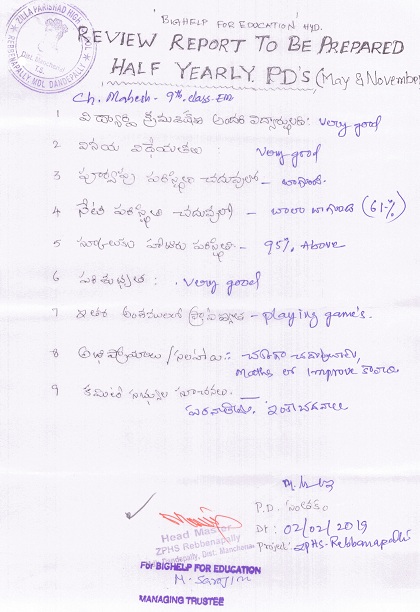 ZILLA PARISHAD HIGH
REBBENAPALLY, MDL. DANDEPALLY
Dist. Mancherial
'BIGHELP FOR EDUCATION' HYD.
REVIEW REPORT TO BE PREPARED
HALF YEARLY PD'S (May & November
Ch. Mahesh - 9th class - EM
1 విద్యార్థి క్రమశిక్షణ అందరి విద్యార్థులతో: very good
2 వినయ విధేయతలు : very good
3 పూర్వపు పరిస్థితి చదువులో - బాగుంది.
4 నేటి పరిస్థితి చదువులో - చాలా బాగుంది (61-%)
5 స్కూలుకు హాజరు పరిస్థితి - 95% Above
6 పరిశుభ్రత : very good
7 ఇతర అంశములలో - playing game's.
8 అభిప్రాయాలు / సలహాలు: - చక్కగా చదువుతాడు,
Maths lo Improve కావాలి
9 కమిటీ సభ్యుల సూచనలు.
ఇంకా చదవాలి
P.D. సంతకం
Dt : 02/02/2019
Project: ZPHS-Rebbenapally
Head Master
ZPHS Rebbenapally
Dandepally, Dist. Mancherial
For BIGHELP FOR EDUCATION
MANAGING TRUSTEE